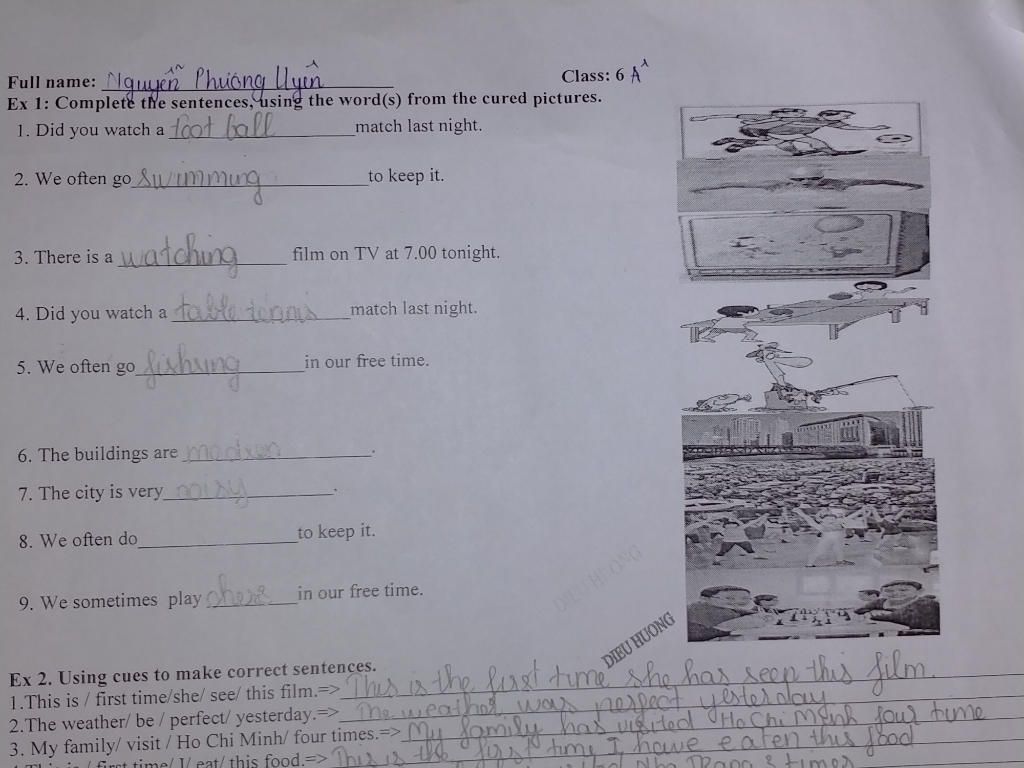 Full name: Nguyễn Phương Uyên Class: 6 A
Ex 1: Complete the sentences, using the word(s) from the cured pictures.
1. Did you watch a foot ball match last night.
2. We often go swimming to keep it.
3. There is a watching film on TV at 7.00 tonight.
4. Did you watch a table tennis match last night.
5. We often go fishing in our free time.
6. The buildings are modern.
7. The city is very noisy.
8. We often do to keep it.
9. We sometimes play chess in our free time.
DIEU HUONG
DIEU HUONG
Ex 2. Using cues to make correct sentences.
1.This is / first time/she/ see/ this film.=> This is the first time she has seen this film.
2.The weather/ be / perfect/ yesterday.=> The weather was perfect yesterday
3. My family/ visit / Ho Chi Minh/ four times.=> My family has visited Ho Chi Minh four time
first time/ I/ eat/ this food.=> This is the first time I have eaten this food
times